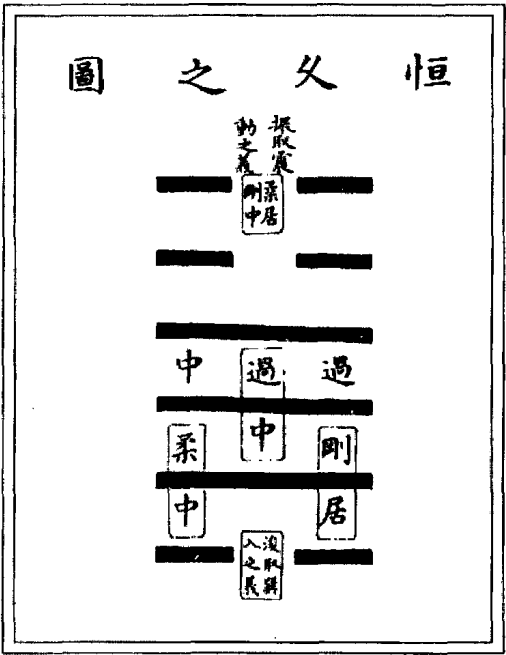 恒久之圖
振取震
動之義
柔居
剛中
過
過中
中
剛居
柔中
浚取巽
入之義